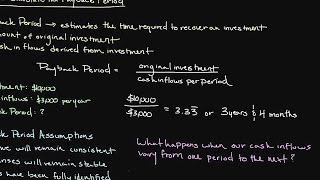 Payback Period
Period → estimates the time required to recover an investment
amount of original investment
cash inflows derived from investment
Payback Period = original investment
cash inflows per period
investment: $10,000
inflows: $3,000 per year
Period: ?
$10,000
$3,000 = 3.33 or 3 years & 4 months
Period Assumptions
will remain consistent
will remain stable
have been fully identified
What happens when our cash inflows
vary from one period to the next?